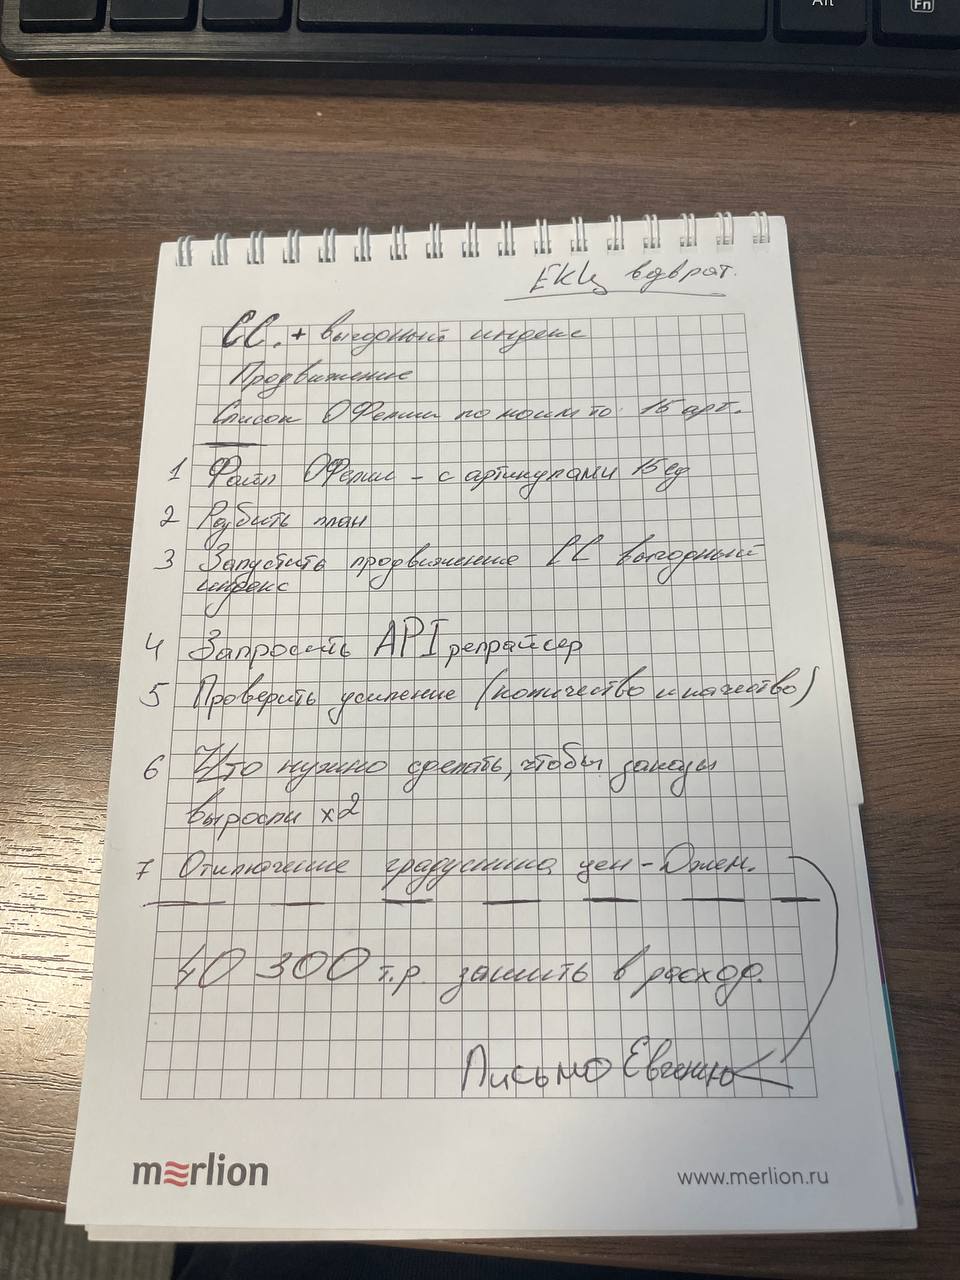 Alt
Fn
ЕКЦ возврат.
СС. + выгодный индекс
Продвижение
Список Офелии по моим то: 15 арт.
1 Файл Офелии - с артикулами 15 ед
2 Разбить план
3 Запустить продвижение СС выгодный
индекс
4 Запросить API репрайсер
5 Проверить усиление (количество и качество)
6 Что нужно сделать, чтобы заказы
выросли x2
7 Отключение градусника цен - Джем.
40 300 т.р. зашить в расход.
Письмо Евгению
merlion
www.merlion.ru